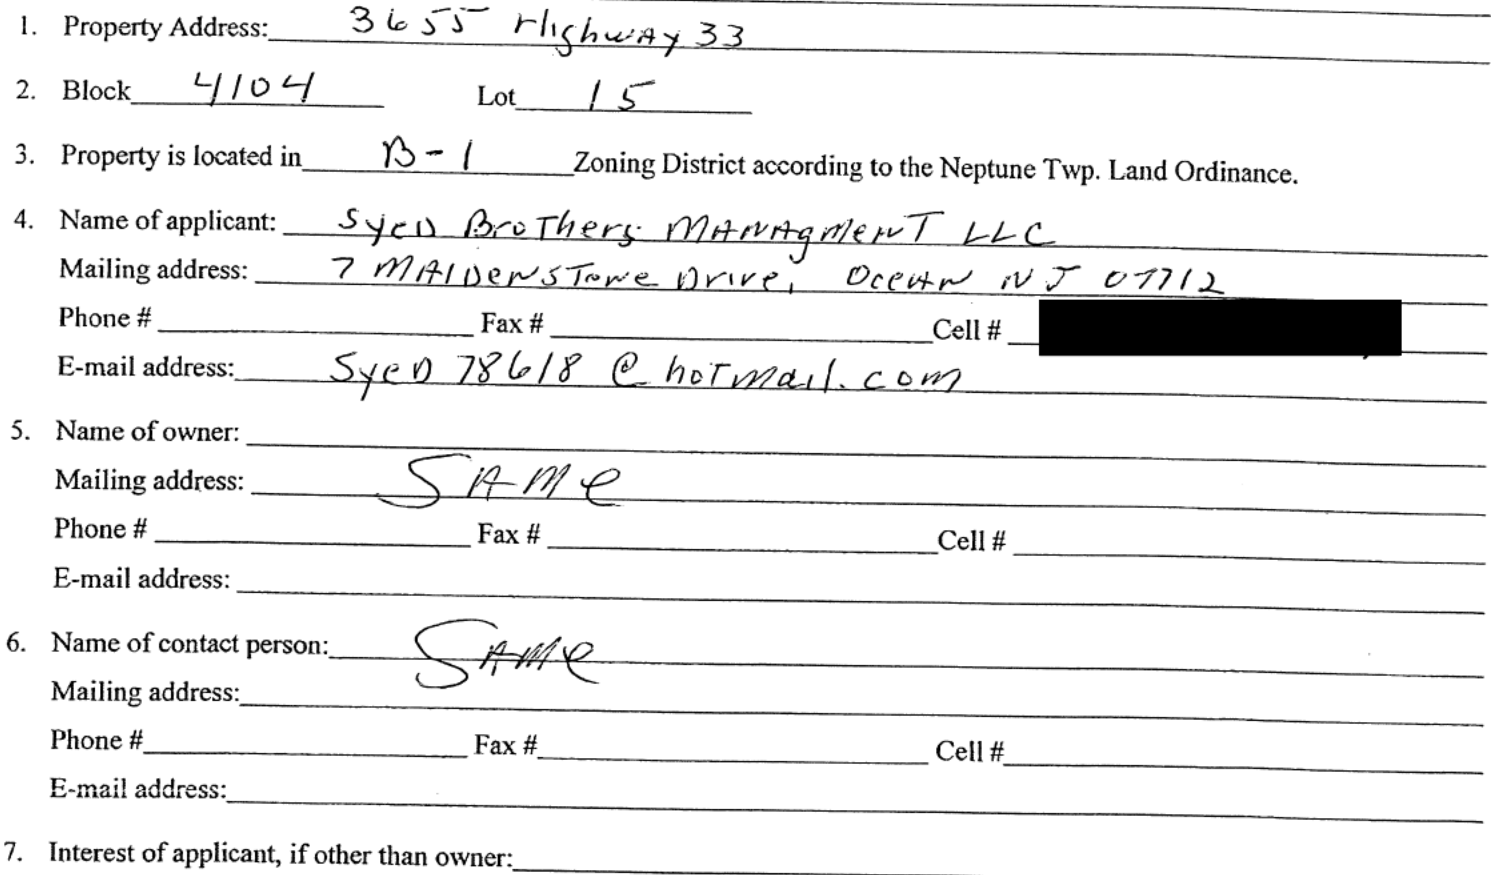 1. Property Address: 3655 Highway 33
2. Block 4104 Lot 15
3. Property is located in B-1 Zoning District according to the Neptune Twp. Land Ordinance.
4. Name of applicant: Syed Brothers MANAgmenT LLC
Mailing address: 7 MAIDenSTone Drive, Ocean NJ 07712
Phone # Fax # Cell #
E-mail address: Syed 78618 @ hotmail.com
5. Name of owner:
Mailing address: SAMe
Phone # Fax # Cell #
E-mail address:
6. Name of contact person: SAMe
Mailing address:
Phone # Fax # Cell #
E-mail address:
7. Interest of applicant, if other than owner: